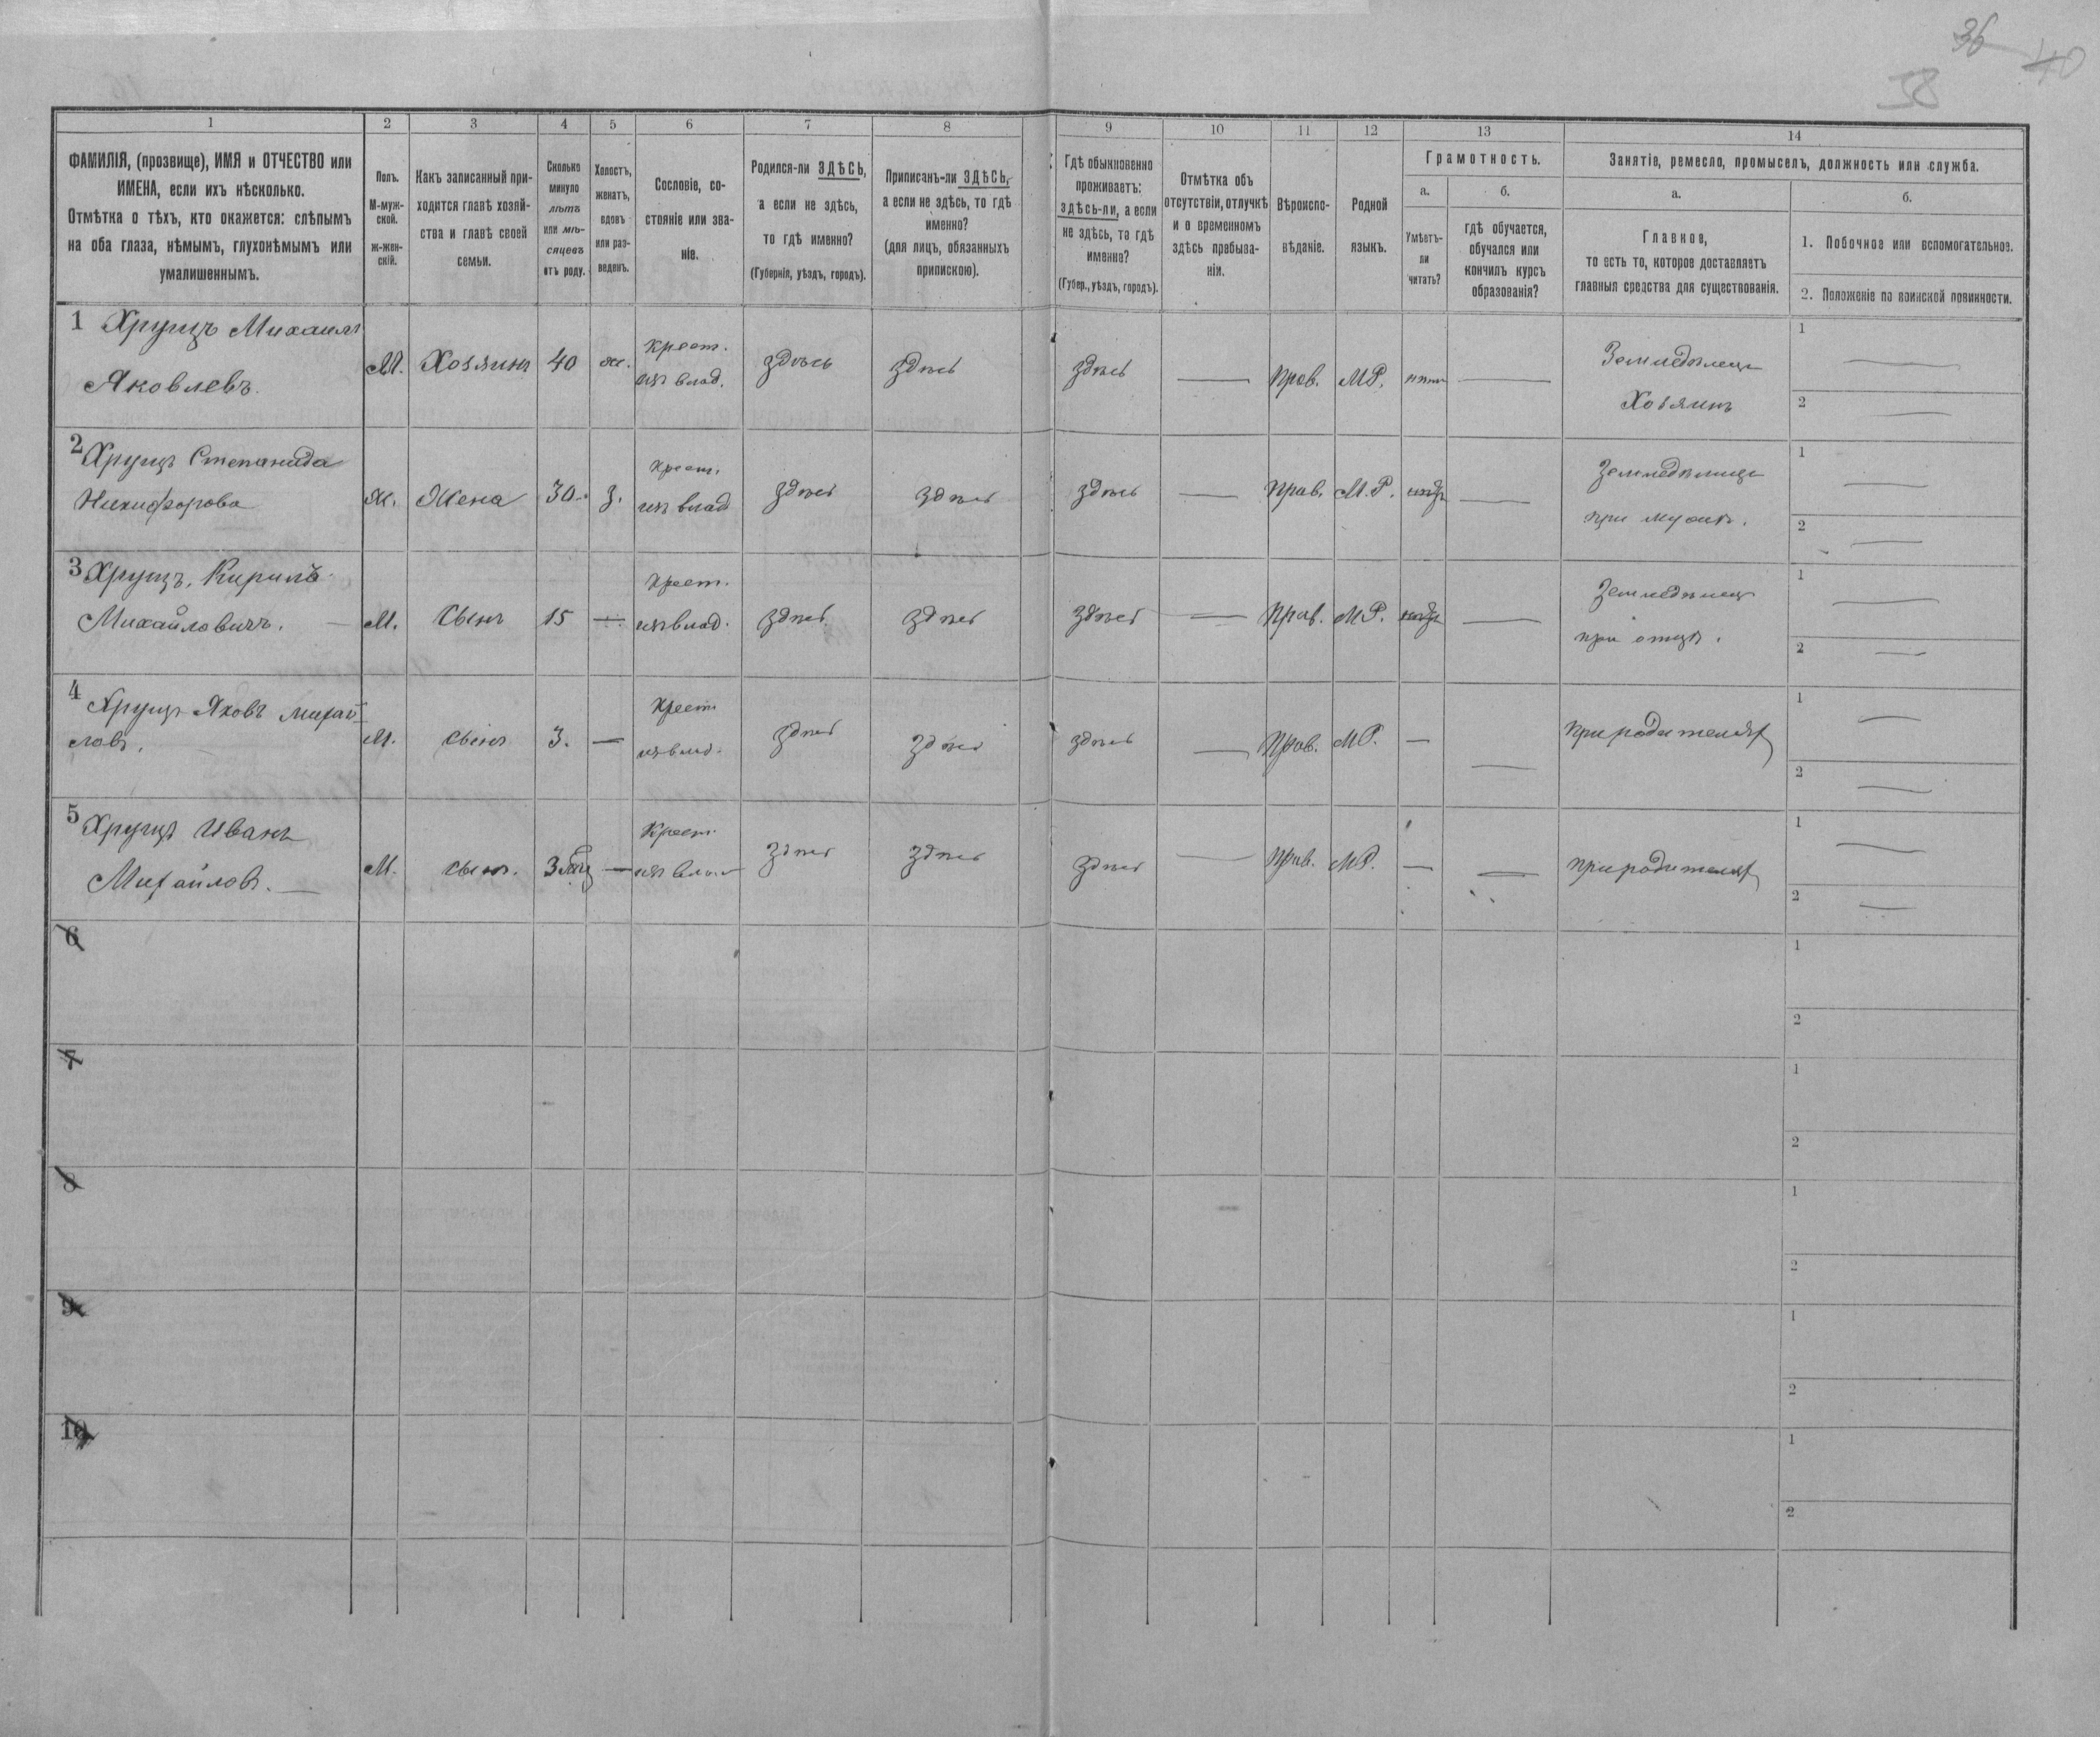 36
40
38
1 2 3 4 5 6 7 8 9 10 11 12 13 14
ФАМИЛІЯ, (прозвище), ИМЯ и ОТЧЕСТВО или
ИМЕНА, если ихъ нѣсколько.
Отмѣтка о тѣхъ, кто окажется: слѣпымъ
на оба глаза, нѣмымъ, глухонѣмымъ или
умалишеннымъ.
Полъ.
М-муж-
ской.
ж-жен-
скій.
Какъ записанный при-
ходится главѣ хозяй-
ства и главѣ своей
семьи.
Сколько
минуло
лѣтъ
или мѣ-
сяцевъ
отъ роду.
Холостъ,
женатъ,
вдовъ
или раз-
веденъ.
Сословіе, со-
стояніе или зва-
ніе.
Родился-ли ЗДѢСЬ,
а если не здѣсь,
то гдѣ именно?
(Губернія, уѣздъ, городъ).
Приписанъ-ли ЗДѢСЬ,
а если не здѣсь, то гдѣ
именно?
(для лицъ, обязанныхъ
припискою).
Гдѣ обыкновенно
проживаетъ:
ЗДѢСЬ-ЛИ, а если
не здѣсь, то гдѣ
именно?
(Губер., уѣздъ, городъ).
Отмѣтка объ
отсутствіи, отлучкѣ
и о временномъ
здѣсь пребыва-
ніи.
Вѣроиспо-
вѣданіе.
Родной
языкъ.
Грамотность.
а. б.
Умѣетъ-
ли
читать?
гдѣ обучается,
обучался или
кончилъ курсъ
образованія?
Занятіе, ремесло, промыселъ, должность или служба.
а. б.
Главное,
то есть то, которое доставляетъ
главныя средства для существованія.
1. Побочное или вспомогательное.
2. Положеніе по воинской повинности.
1 Хрущъ Михаилъ
Яковлевъ.
М. Хозяинъ 40 ж. Крест.
изъ влад. здѣсь здѣсь здѣсь — Прав. М.Р. нѣтъ —
Земледѣлецъ
Хозяинъ
1 —
2 —
2 Хрущъ Степанида
Никифорова
Ж. Жена 30. з. Крест.
изъ влад здѣсь здѣсь здѣсь — Прав. М.Р. —
Земледѣлица
при мужѣ.
1 —
2 —
3 Хрущъ, Кирилъ
Михайловичъ. —
М. Сынъ 15 — Крест.
изъ влад. здѣсь здѣсь здѣсь — Прав. М.Р. —
Земледѣлецъ
при отцѣ.
1 —
2 —
4 Хрущъ Яковъ Михай
ловъ.
М. Сынъ 3. — Крест
изъ влад. здѣсь здѣсь здѣсь — Прав. М.Р. — —
при родителяхъ
1 —
2 —
5 Хрущъ Иванъ
Михайловъ. —
М. Сынъ. 3 — Крест
изъ влад здѣсь здѣсь здѣсь — Прав. М.Р. — —
при родителяхъ
1 —
2 —
6
1
2
7
1
2
8
1
2
9
1
2
10
1
2